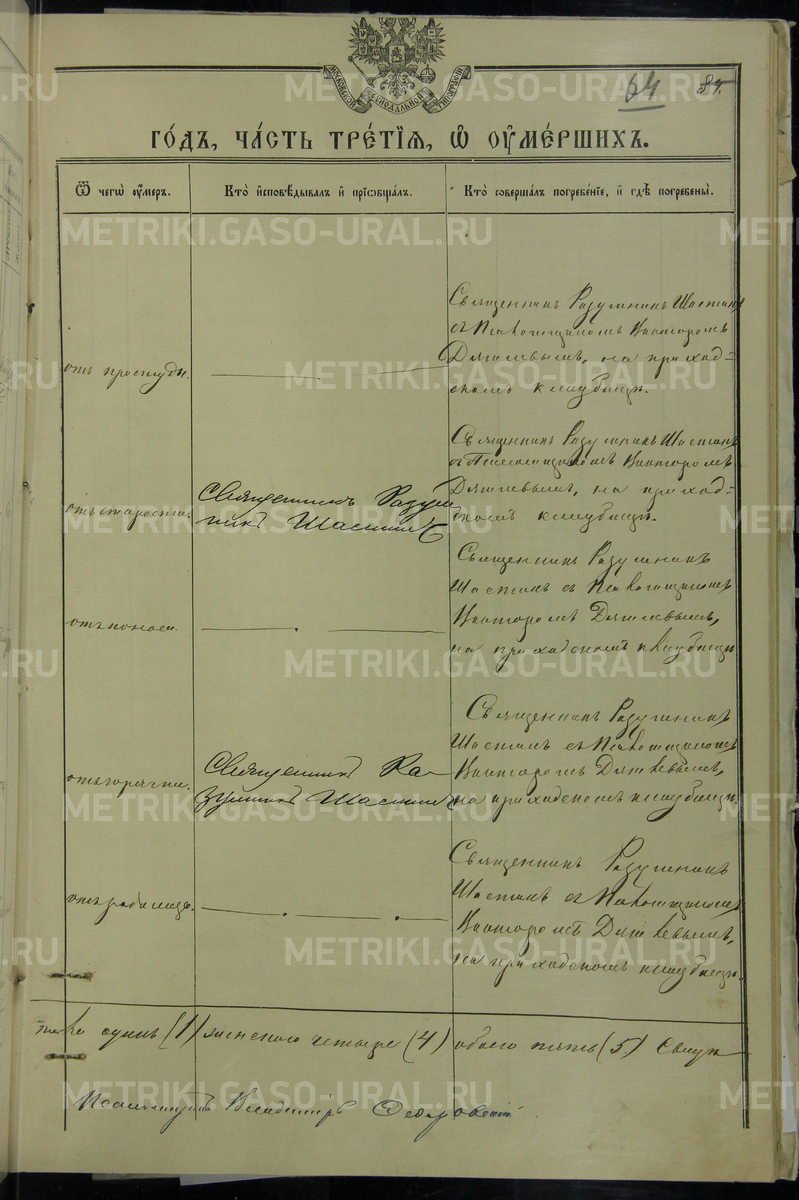 МОСКОВСКОЙ СѴНОДАЛЬНОЙ ТИПОГРАФІИ
64 87.
ГО́ДЪ, ЧА́СТЬ ТРЕ́ТІѦ, Ѡ҆ ОУ҆МЕ́РШИХЪ.
Ѿ чегѡ̀ оу҆́меръ.
Кто̀ и҆сповѣ́дывалъ и҆ прїѡбща́лъ.
Кто̀ соверша́лъ погребе́нїе, и҆ гдѣ̀ погребены̀.
отъ простуды.
Священникъ Разумникъ Шастинъ
съ Псаломщикомъ Викторомъ
Дягилевымъ, на приход-
скомъ кладбищѣ.
отъ старости.
Священникъ Разум-
никъ Шастинъ
Священникъ Разумникъ Шастинъ
съ Псаломщикомъ Викторомъ
Дягилевымъ, на приход-
скомъ кладбищѣ.
отъ поноса.
Священникъ Разумникъ
Шастинъ съ Псаломщикомъ
Викторомъ Дягилевымъ,
на приходскомъ кладбищѣ
отъ горячки.
Священникъ Ра-
зумникъ Шастинъ
Священникъ Разумникъ
Шастинъ съ Псаломщикомъ
Викторомъ Дягилевымъ,
на приходскомъ кладбищѣ.
отъ родимца.
Священникъ Разумникъ
Шастинъ съ Псаломщикомъ
Викторомъ Дягилевымъ,
на приходскомъ кладбищѣ.
одинъ (1) женскаго четыре (4) обоего пять (5)
Псаломщикъ Владиміръ
METRIKI.GASO-URAL.RU